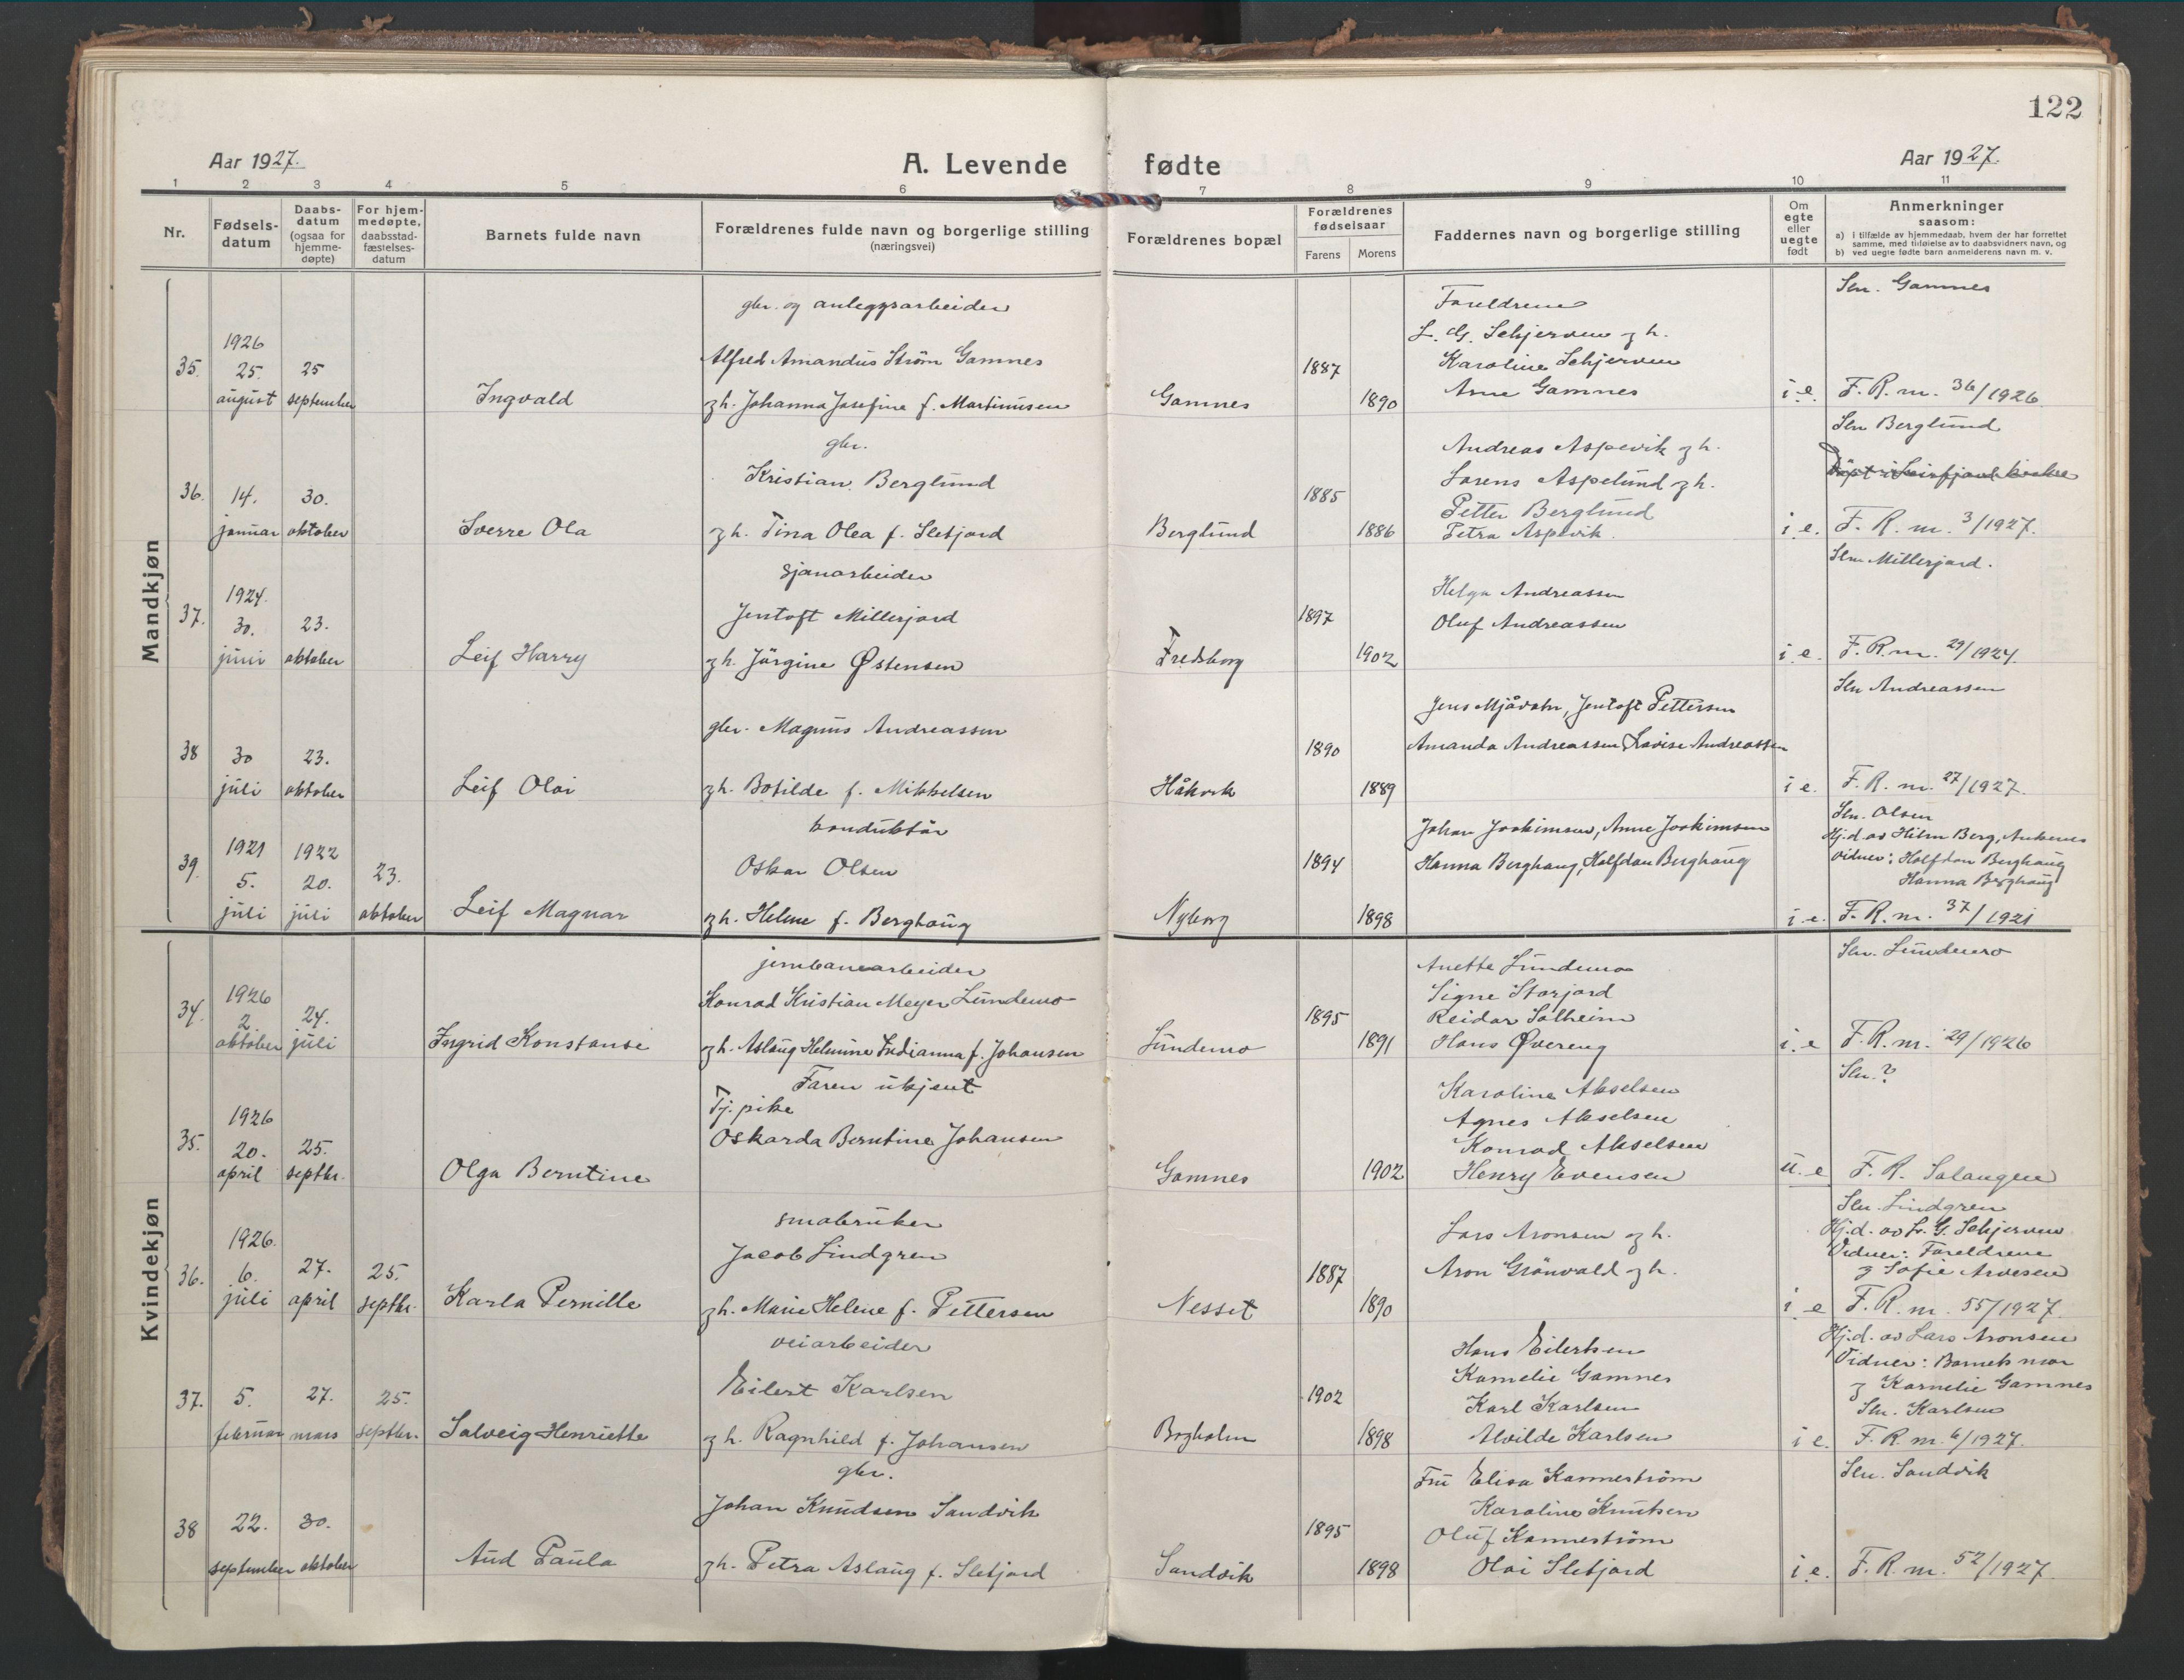 122
Aar 1927.
A. Levende fødte
Aar 1927.
1 2 3 4 5 6 7 8 9 10 11
Nr.
Fødsels-
datum
Daabs-
datum
(ogsaa for
hjemme-
døpte)
For hjem-
medøpte,
daabsstad-
fæstelses-
datum
Barnets fulde navn
Forældrenes fulde navn og borgerlige stilling
(næringsvei)
Forældrenes bopæl
Forældrenes
fødselsaar
Farens Morens
Faddernes navn og borgerlige stilling
Om
egte
eller
uegte
født
Anmerkninger
saasom:
a) i tilfælde av hjemmedaab, hvem der har forrettet
samme, med tilføielse av to daabsvidners navn, og
b) ved uegte fødte barn anmelderens navn m. v.
Mandkjøn
35.
1926
25.
august
25
september
Ingvald
gbr. og anleggsarbeider
Alfred Amandus Strøm Gamnes
og h. Johanna Josefine f. Martinussen
Gamnes
1887
1890
Foreldrene
L. G. Schjerven og h.
Karoline Schjerven
Arne Gamnes
i. e.
Sln. Gamnes
F. R. nr. 36/1926
36.
14.
januar
30.
oktober
Sverre Ola
gbr.
Kristian Berglund
og h. Tina Olea f. Sletjord
Berglund
1885
1886
Andreas Aspevik og h.
Lorens Aspelund og h.
Petter Berglund
Petra Aspevik
i. e.
Sln Berglund
Döpt i kirke
F. R. nr. 3/1927.
37.
1924.
30.
juni
23.
oktober
Leif Harry
Sjauarbeider
Jentoft Millerjord
og h. Jörgine Østensen
Fredsborg
1897
1902
Helga Andreassen
Oluf Andreassen
i. e.
Sln Millerjord.
F. R. nr. 29/1924.
38
30
juli
23.
oktober
Leif Olai
gbr. Magnus Andreassen
og h. Botilde f. Mikkelsen
Håkvik
1890
1889
Jens Mjåvatn, Jentoft Pettersen
Amanda Andreassen Lovise Andreassen
i e.
Sln Andreassen
F. R. nr. 27/1927.
39.
1921
5.
juli
1922
20.
juli
23.
oktober
Leif Magnar
konduktör
Oskar Olsen
og h. Helene f. Berghaug
Nyborg
1894
1898
Johan Joakimsen, Anne Joakimsen
Hanna Berghaug, Halfdan Berghaug
i. e.
Sln. Olsen
Hj.d. av Hilm Berg, Ankenes
Vidner: Halfdan Berghaug
Hanna Berghaug
F. R. nr. 37/1921
Kvindekjøn
34.
1926
2.
oktober
24.
juli
Ingrid Konstanse
jernbanearbeider
Konrad Kristian Meyer Lundemo
og h. Aslaug Helmine Indianna f. Johansen
Lundemo
1895
1891
Anette Lundemo
Signe Storjord
Reidar Solheim
Hans Øvereng
i. e
Sln. Lundemo
F. R. nr. 29/1926
35.
1926
20.
april
25.
septbr.
Olga Berntine
Faren ukjent
Tj. pike
Oskarda Berntine Johansen
Gamnes
1902
Karoline Akselsen
Agnes Akselsen
Konrad Akselsen
Henry Evensen
u. e
Sln. ?
F. R. Salangen
36.
1926.
6.
juli
27.
april
25.
septbr.
Karla Pernille
småbruker
Jacob Lindgren
og h. Marie Helene f. Pettersen
Nesset
1887
1890
Lars Aronsen og h.
Aron Grönvald og h.
i e
Sln. Lindgren
Hj.d. av L. G. Schjerven
Vidner: Foreldrene
og Sofie Arvesen
F. R. nr. 55/1927
37.
5.
februar
27.
mars
25.
septbr.
Solveig Henriette
veiarbeider
Eilert Karlsen
og h. Ragnhild f. Johansen
Borgholm
1902
1898
Hans Eilertsen
Kornelie Gamnes
Karl Karlsen
Alvilde Karlsen
i e.
Hj.d. av Lars Aronsen
Vidner: Barnets mor
og Kornelie Gamnes
Sln. Karlsen
F. R. nr. 6/1927.
38
22.
september
30.
oktober
Aud Paula
gbr.
Johan Knudsen Sandvik
og h. Petra Aslaug f. Sletjord
Sandvik
1895
1898
Fru Elisa Kanneström
Karoline Knutsen
Oluf Kanneström
Olai Sletjord
i. e.
Sln. Sandvik
F. R. nr. 52/1927.